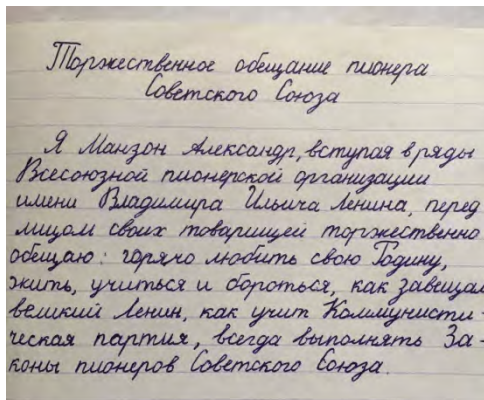 Торжественное обещание пионера
Советского Союза
Я Манзон Александр, вступая в ряды
Всесоюзной пионерской организации
имени Владимира Ильича Ленина, перед
лицом своих товарищей торжественно
обещаю: горячо любить свою Родину,
жить, учиться и бороться, как завещал
великий Ленин, как учит Коммунисти-
ческая партия, всегда выполнять За-
коны пионеров Советского Союза.